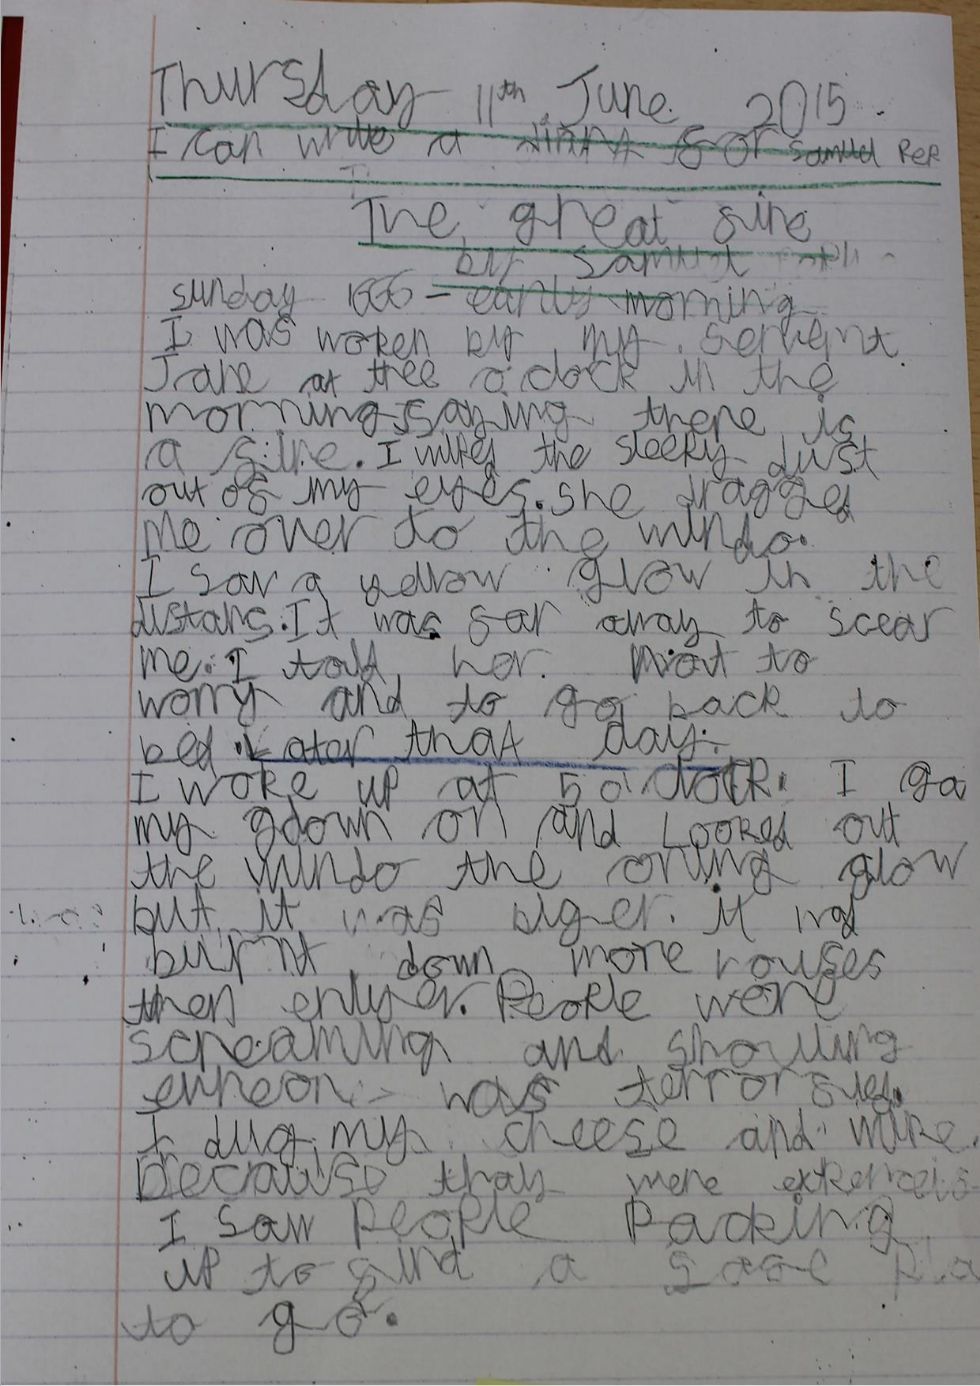 Thursday 11th June 2015.
I can write a diary for Samuel Pep
The great fire
by Samuel
Sunday 1666 - early morning
I was woken by my servent
Jane at thee o'clock in the
morning saying there is
a fire. I wiked the sleeky dust
out of my eyes. she dragged
me over to the windo.
I saw a yellow glow in the
distans. It was far away to scear
me. I told her not to
worry and to go back to
bed. Later that day:
I woke up at 5 o'clock. I ga
my gdown on and Looked out
the windo the oring glow
but it was biger. it had
burnt down more houses
then erlyer. People were
screaming and shouting
evreon was terrorfied.
I dug my chesse and wine.
Becaulse thay were
I saw People Packing
up to find a safe pla
to go.